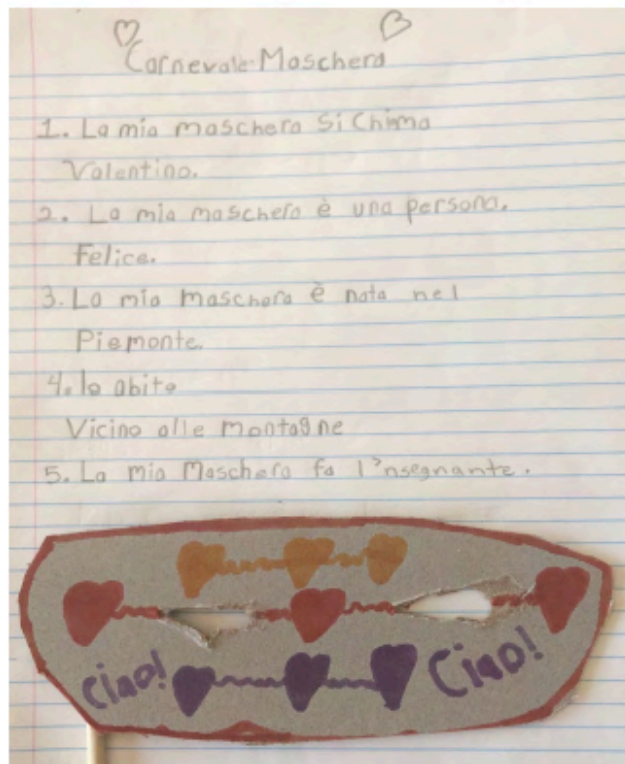 Carnevale Maschera
1. La mia maschera Si Chima
Valentino.
2. La mia maschera è una persona.
Felice.
3. La mia maschera è nata nel
Piemonte.
4. Io abito
Vicino alle montagne
5. La mia Maschera fa l'nsegnante.
Ciao! Ciao!